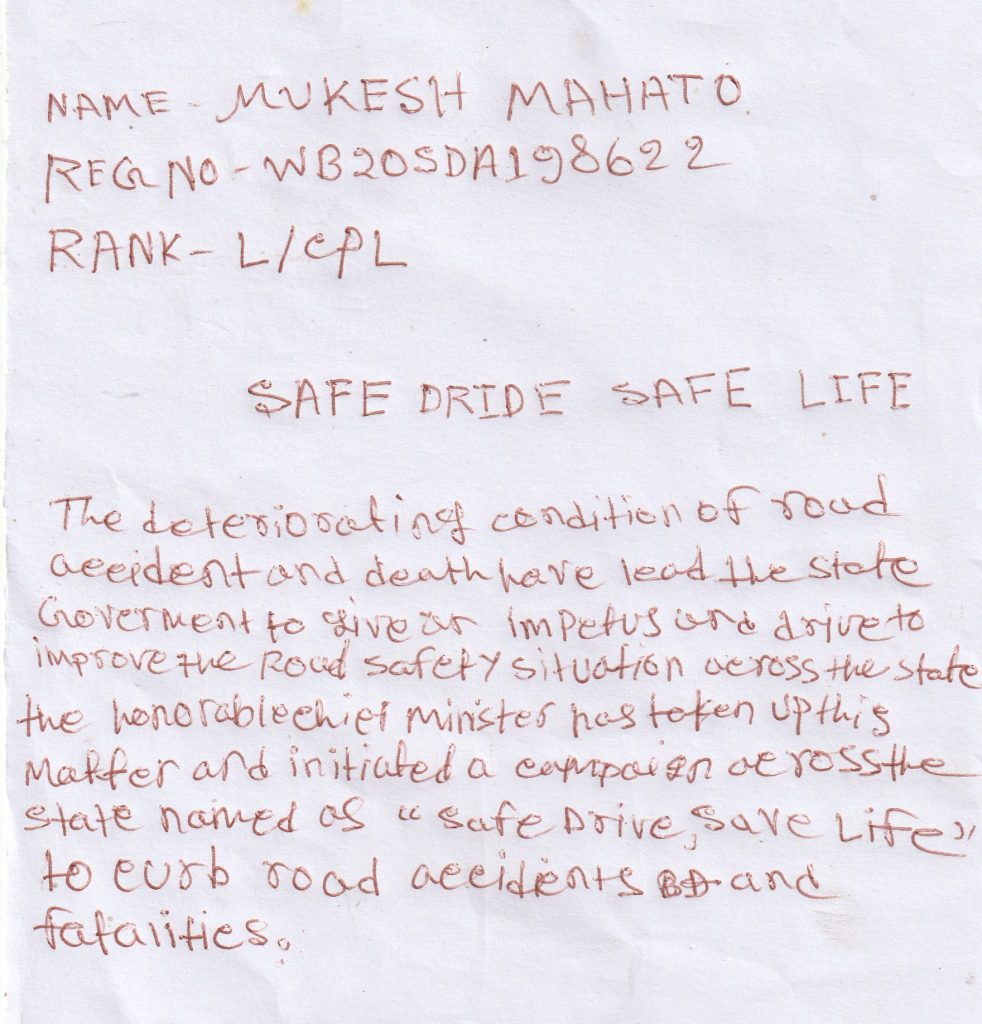 NAME - MUKESH MAHATO
REG NO - WB20SDA198622
RANK - L/CPL
SAFE DRIDE SAFE LIFE
The deteriorating condition of road
accident and death have lead the state
Goverment to give an impetus and drive to
improve the Road safety situation across the state
the honorable chief minister has taken up this
Matter and initiated a campaign across the
state named as "Safe Drive, Save Life"
to curb road accidents and
fatalities.